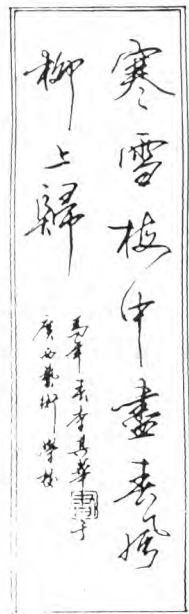 寒雪梅中盡春風
柳上歸
馬年春李其華書于
廣西藝術學校